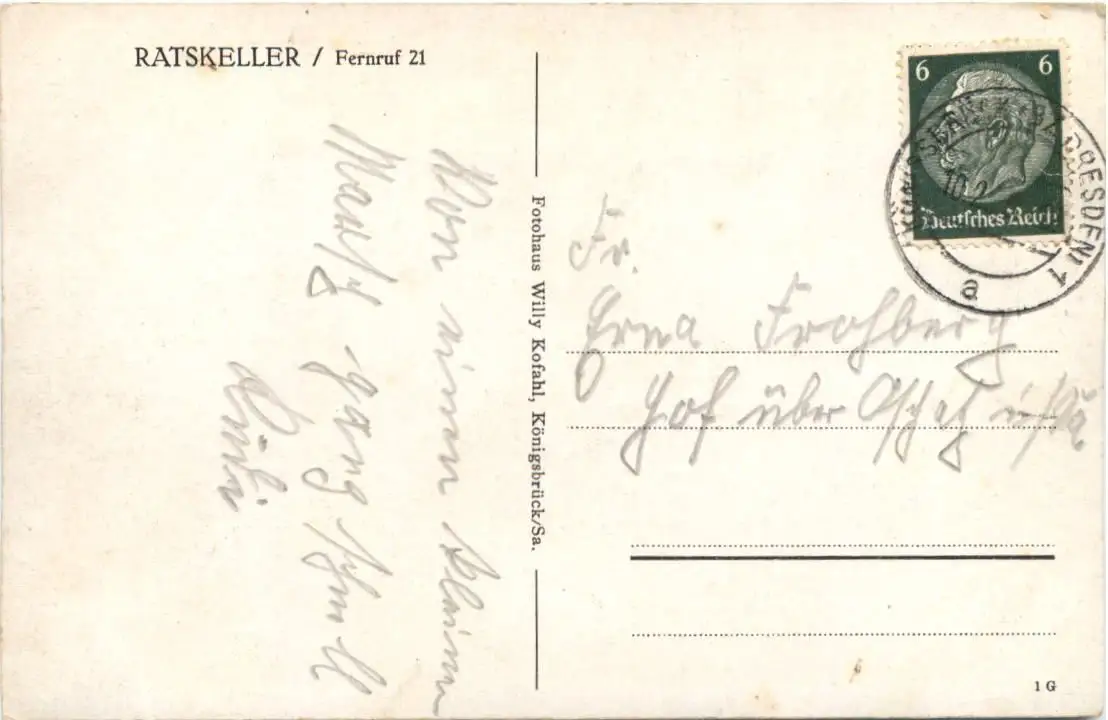 RATSKELLER / Fernruf 21
Von einem kleinen
ganz schnell
Fotohaus Willy Kofahl, Königsbrück/Sa.
6 6
Deutsches Reich
DRESDEN 1
10.2
a
Fr.
Erna Frohberg
Hof über Oschatz i/Sa
1 G